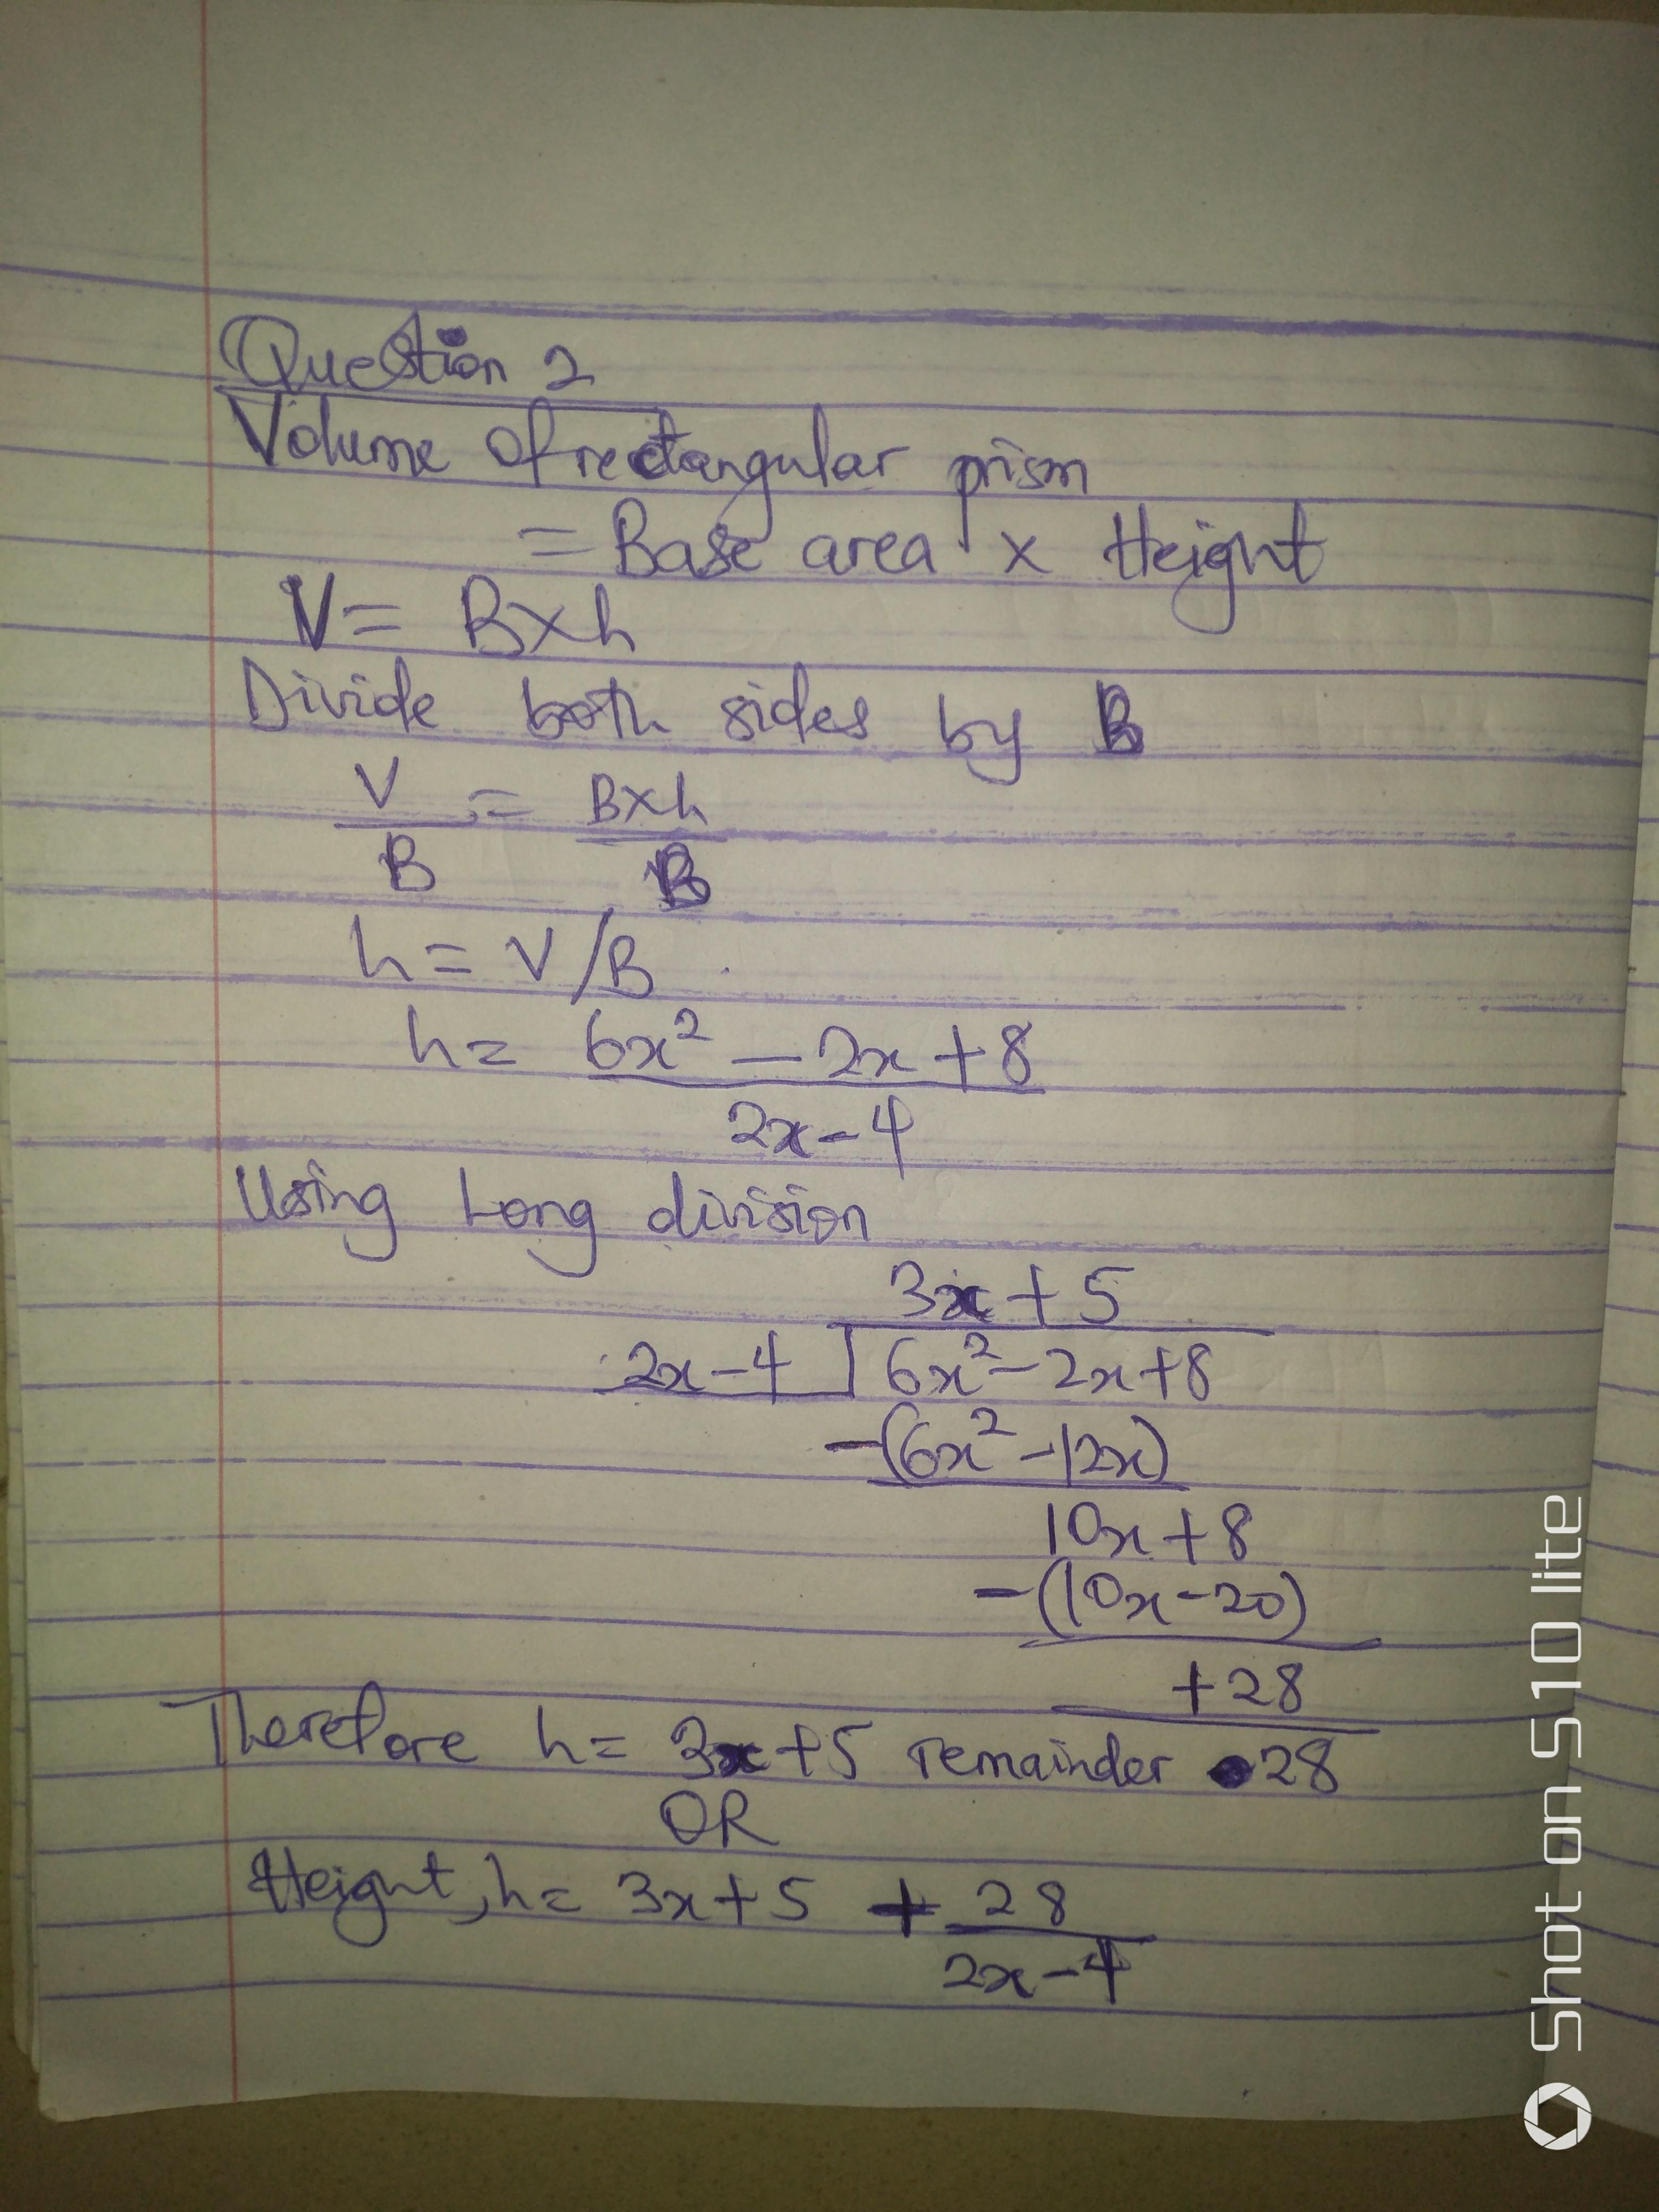 Question 2
Volume of rectangular prism
= Base area x Height
V = B x h
Divide both sides by B
V/B = B x h/B
h = V/B
h = 6x² - 2x + 8
2x - 4
Using Long division
3x + 5
2x - 4 | 6x² - 2x + 8
-(6x² - 12x)
10x + 8
-(10x - 20)
+28
Therefore h = 3x + 5 remainder 28
OR
Height, h = 3x + 5 + 28
2x - 4
Shot on S10 lite